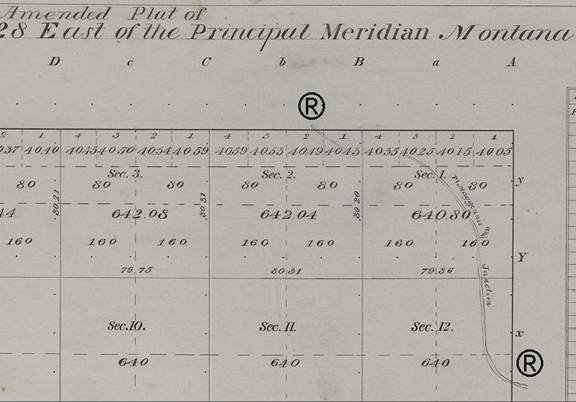 Amended Plat of
28 East of the Principal Meridian Montana
D c C b B a A
®
2 1 4 3 2 1 4 3 2 1 4 3 2 1
4040 4045 4050 4054 4059 4059 4053 4049 4043 4035 4025 4015 4005
Sec. 3. Sec. 2. Sec. 1.
80 80 80 80 80 80 80 y
80.21 80.31 80.20
44 642.08 642.04 640.80
160 160 160 160 160 160 160
Y
79.75 80.31 79.86
Junction
Sec. 10. Sec. 11. Sec. 12. x
640 640 640
®